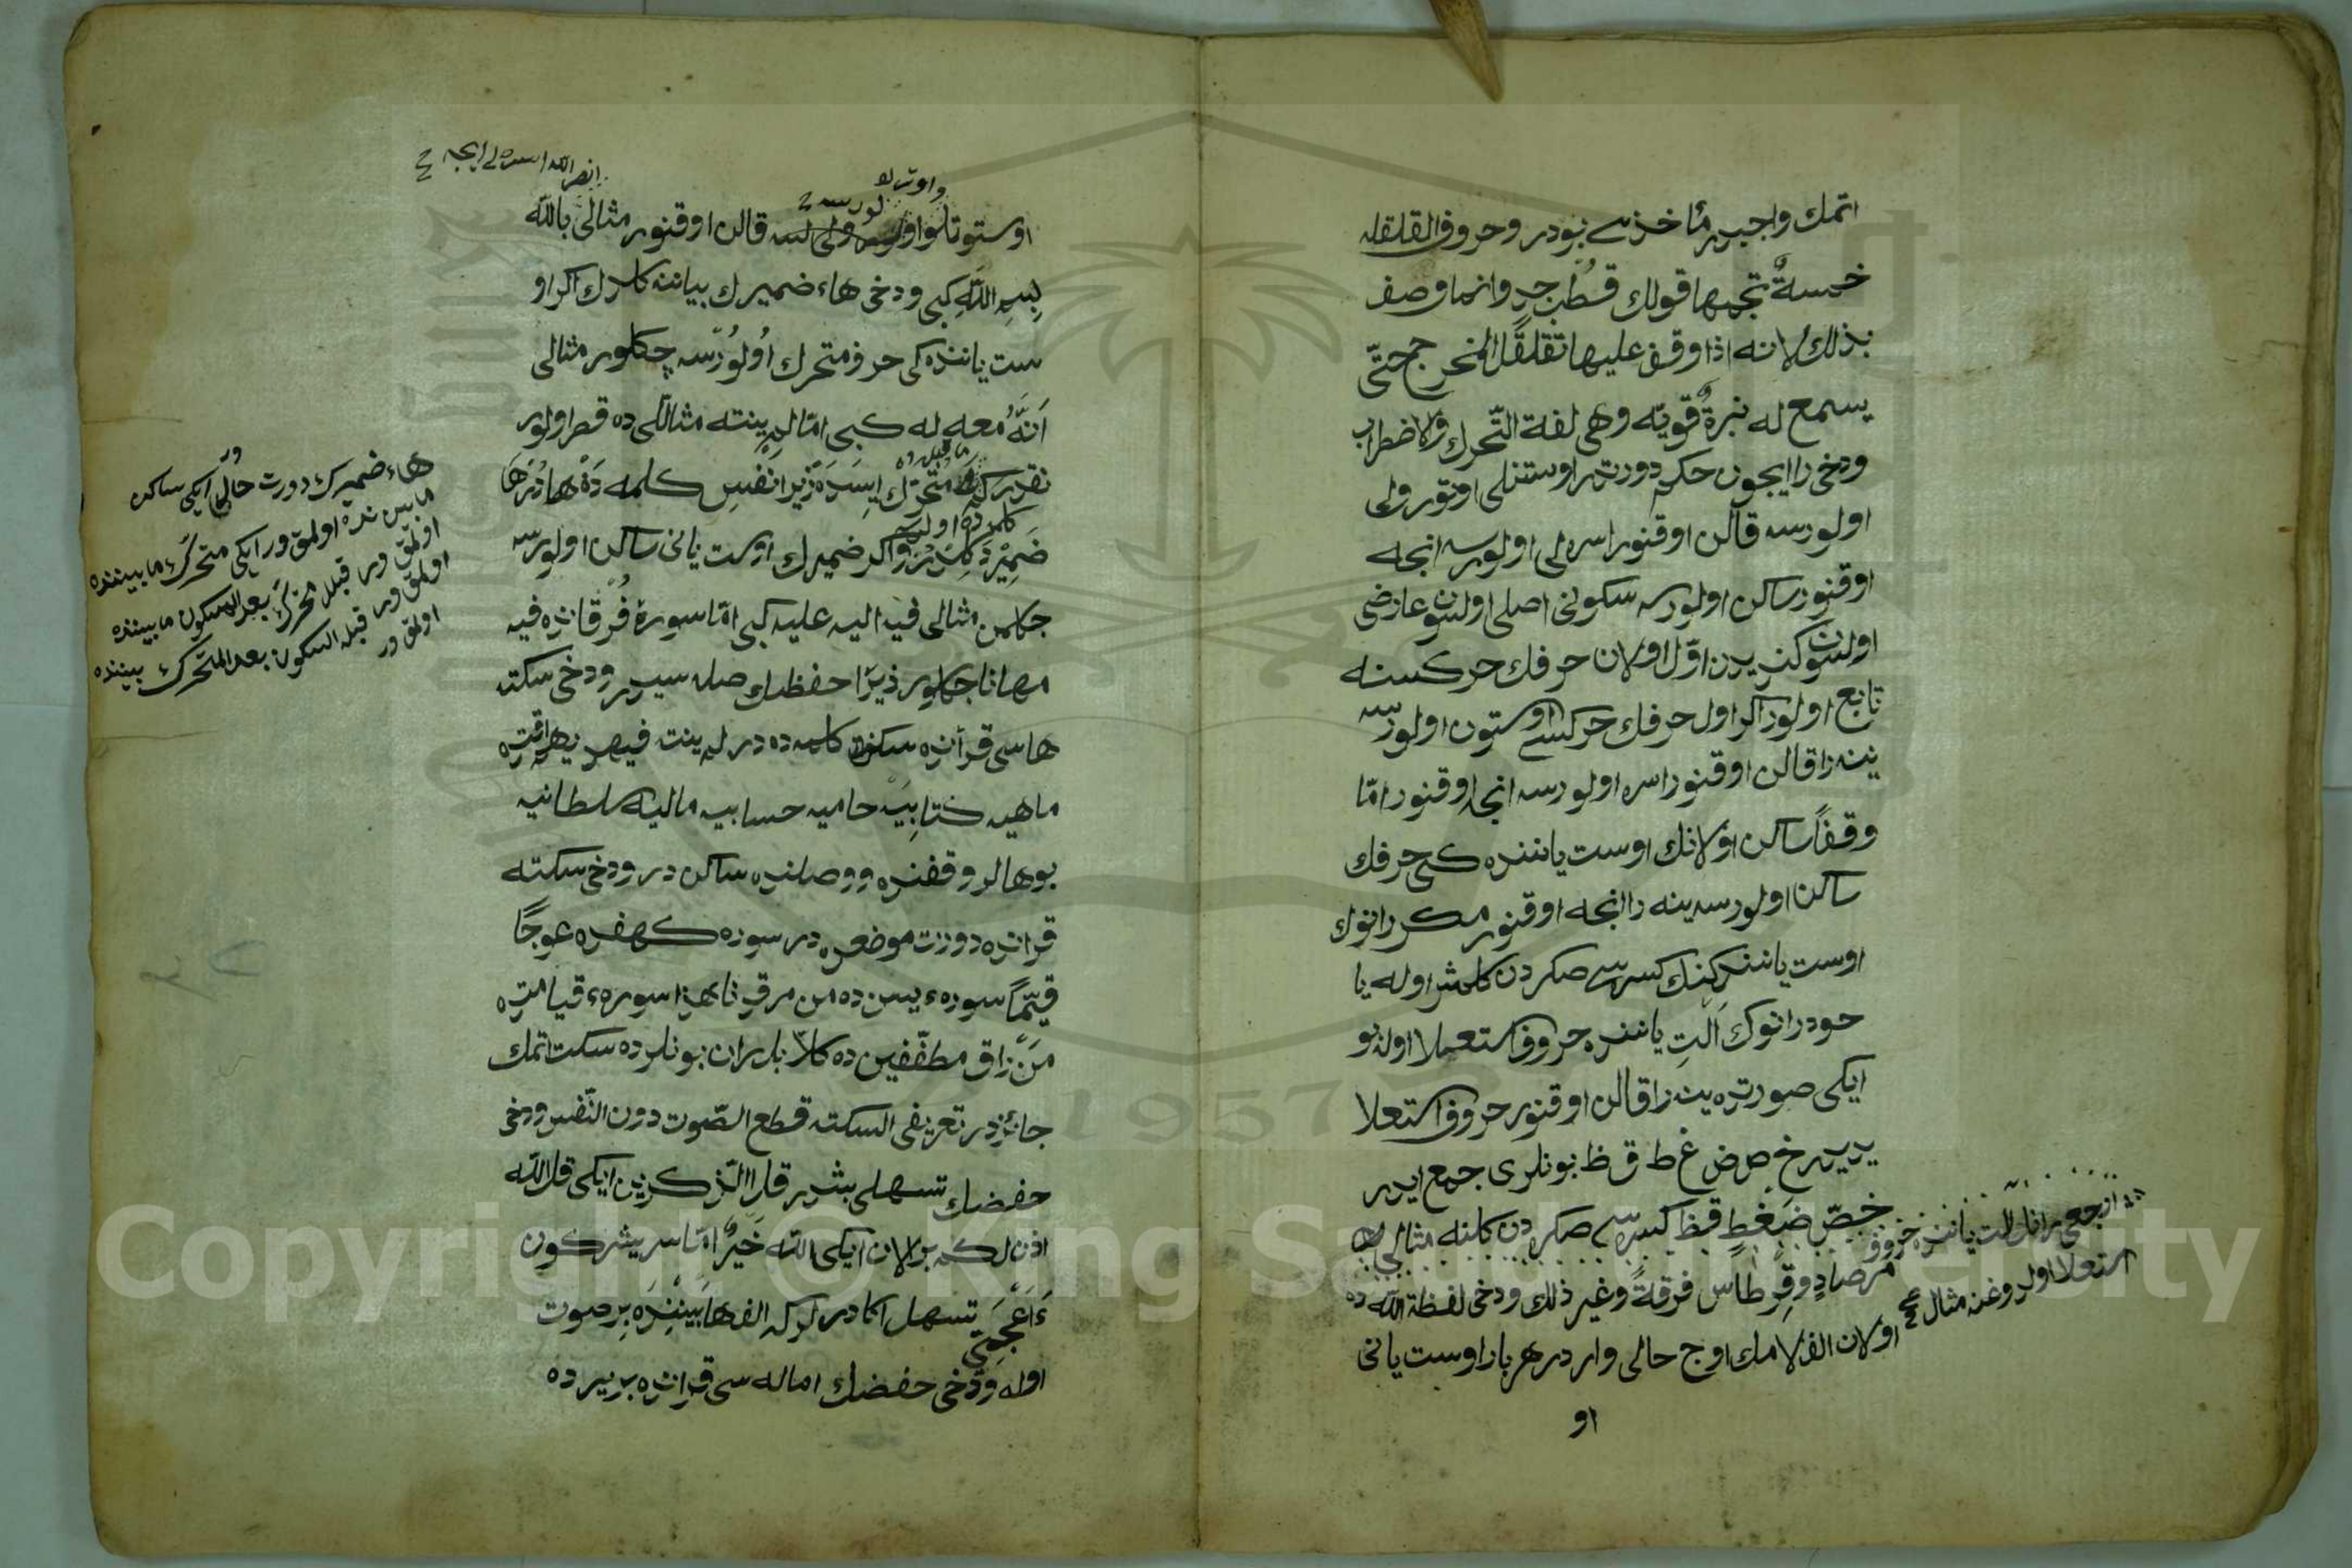 اتمك واجبدر مأخذى بودر وحروف القلقله
خمسةٌ تجمعها قولك قُطُب جدٍ وانما وصف
بذلك لانه اذا وقف عليها تقلقل المخرج حتّى
يسمع له نبرةٌ قويّه وهى لغة التّحرك والاضطراب
ودخى را ايجون حكم دورتدر اوستنلى اوتورولى
اولورسه قالن اوقنور اسره لى اولورسه انجه
اوقنور ساكن اولورسه سكونى اصلى اولسون عارضى
اولسون كندیدن اوّل اولان حرفك حركسنه
تابع اولور اكر اول حرفك حركسى اوستون اولورسه
ينه را قالن اوقنور اسره اولورسه انجه اوقنور امّا
وقفاً ساكن اولانك اوست ياننده كى حرفك
ساكن اولورسه ينه را انجه اوقنور مكر رانوك
اوست ياننده كنك كسره سى صكردن كلمش اوله يا
خود رانوك الت ياننده حروف استعلا اوله بو
ايكى صورتده ينه را قالن اوقنور حروف استعلا
يديدر خ ص ض غ ط ق ظ بونلرى جمع ايدر
خصّ ضَغْطٍ قظ كسره سى صكره دن كلنه مثال
مرصادٍ وقِرطاسٍ فرقةً وغير ذلك ودخى لفظة الله ده
اولان الف لامك اوج حالى واردر هر بار اوست يانى
او
ارجعى رانك الت ياننده حروف
استعلا اولدوغنه مثال
اوستو تلو اولسه قالن اوقنور مثالى بالله
بسم الله كبى ودخى هاء ضميرك بياننه كلدك اكر او
ست ياننده كى حرف متحرك اولورسه چكلور مثالى
اَنَّهُ معه له كبى امّا لم ينته مثاللى ده قصر اولور
متحرك ايسه ده زيرا نفس كلمه ده هادر ها
ضمير دكلدر واكر ضميرك اوست يانى ساكن اولورسه
چكلمز مثالى فيه اليه عليه كبى امّا سورۀ فرقانده فيه
مهانا چكلور زيرا حفظك صله سيدر ودخى سكته
هاسى قرأنده سكز كلمه ده در لم يتسنه فبهديهم اقتده
ماهيه كتابيَه حاميه حسابيه ماليه سلطانيه
بوهالر وقفنده ووصلنده ساكن در ودخى سكته
قرانده دورت موضعده در سوره كهفده عوجًا
قيّمًا سورهء يسن ده من مرقدنا هذا سورهء قيامتده
مَنْ راق مطفّفين ده كلاّ بل ران بونلرده سكت اتمك
جائزدر تعريفى السكته قطع الصّوت دون النّفس ودخى
حفضك تسهلى بشدر قل االذّكرين ايكى قل الله
اذن لكم بر الان ايكى الله خيرٌ امّا يشركون
ءَاَعْجَمِىٌّ تسهل اكا درلر كه الف ها بيننده بر صوت
اوله ودخى حفضك اماله سى قرانده بر يرده
هاء ضميرك دورت حالى وار ايكى ساكن
مابيننده اولمق ور ايكى متحرك مابيننده
اولمق ور قبله متحرك بعد السكون مابيننده
اولمق ور قبله السكون بعد المتحرك بيننده
اولمق ور
Copyright © King Saud University
1957